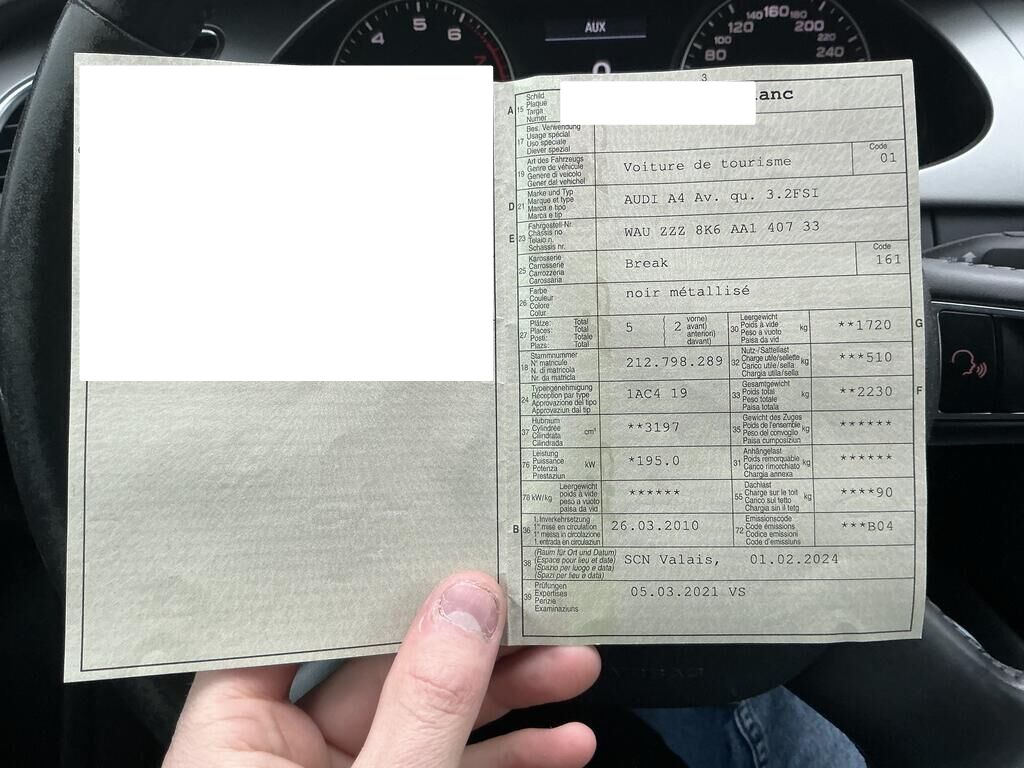 4 5 6 7
AUX
0
80 100 120 140 160 180 200 220 240
3
A 15 Schild
Plaque
Targa
Numer
anc
17 Bes. Verwendung
Usage spécial
Uso speciale
Diever spezial
19 Art des Fahrzeugs
Genre de véhicule
Genere di veicolo
Gener dal vehichel
Voiture de tourisme
Code
01
D 21 Marke und Typ
Marque et type
Marca e tipo
Marca e tip
AUDI A4 Av. qu. 3.2FSI
E 23 Fahrgestell-Nr.
Châssis no
Telaio n.
Schassis nr.
WAU ZZZ 8K6 AA1 407 33
25 Karosserie
Carrosserie
Carrozzeria
Carossaria
Break
Code
161
26 Farbe
Couleur
Colore
Colur
noir métallisé
27 Plätze: Total
Places: Total
Posti: Totale
Plazs: Total
5 ( 2 vorne)
avant)
anteriori)
davant)
30 Leergewicht
Poids à vide
Peso a vuoto
Paisa da vid
kg
**1720 G
18 Stammnummer
N° matricule
N. di matricola
Nr. da matricla
212.798.289
32 Nutz-/Sattellast
Charge utile/sellette
Carico utile/sella
Chargia utila/sella
kg
***510
24 Typengenehmigung
Réception par type
Approvazione del tipo
Approvaziun dal tip
1AC4 19
33 Gesamtgewicht
Poids total
Peso totale
Paisa totala
kg
**2230 F
37 Hubraum
Cylindrée
Cilindrata
Cilindrada
cm³
**3197
35 Gewicht des Zuges
Poids de l'ensemble
Peso del convoglio
Paisa cumposiziun
kg
******
76 Leistung
Puissance
Potenza
Prestaziun
kW
*195.0
31 Anhängelast
Poids remorquable
Carico rimorchiato
Chargia annexa
kg
******
78 kW/kg Leergewicht
poids à vide
peso a vuoto
paisa da vid
******
55 Dachlast
Charge sur le toit
Carico sul tetto
Chargia sin il tetg
kg
****90
B 36 1. Inverkehrsetzung
1re mise en circulation
1a messa in circolazione
1. entrada en circulaziun
26.03.2010
72 Emissionscode
Code émissions
Codice emissioni
Code d'emissiuns
***B04
38 (Raum für Ort und Datum)
(Espace pour lieu et date)
(Spazio per luogo e data)
(Spazi per lieu e data)
SCN Valais, 01.02.2024
39 Prüfungen
Expertises
Perizie
Examinaziuns
05.03.2021 VS